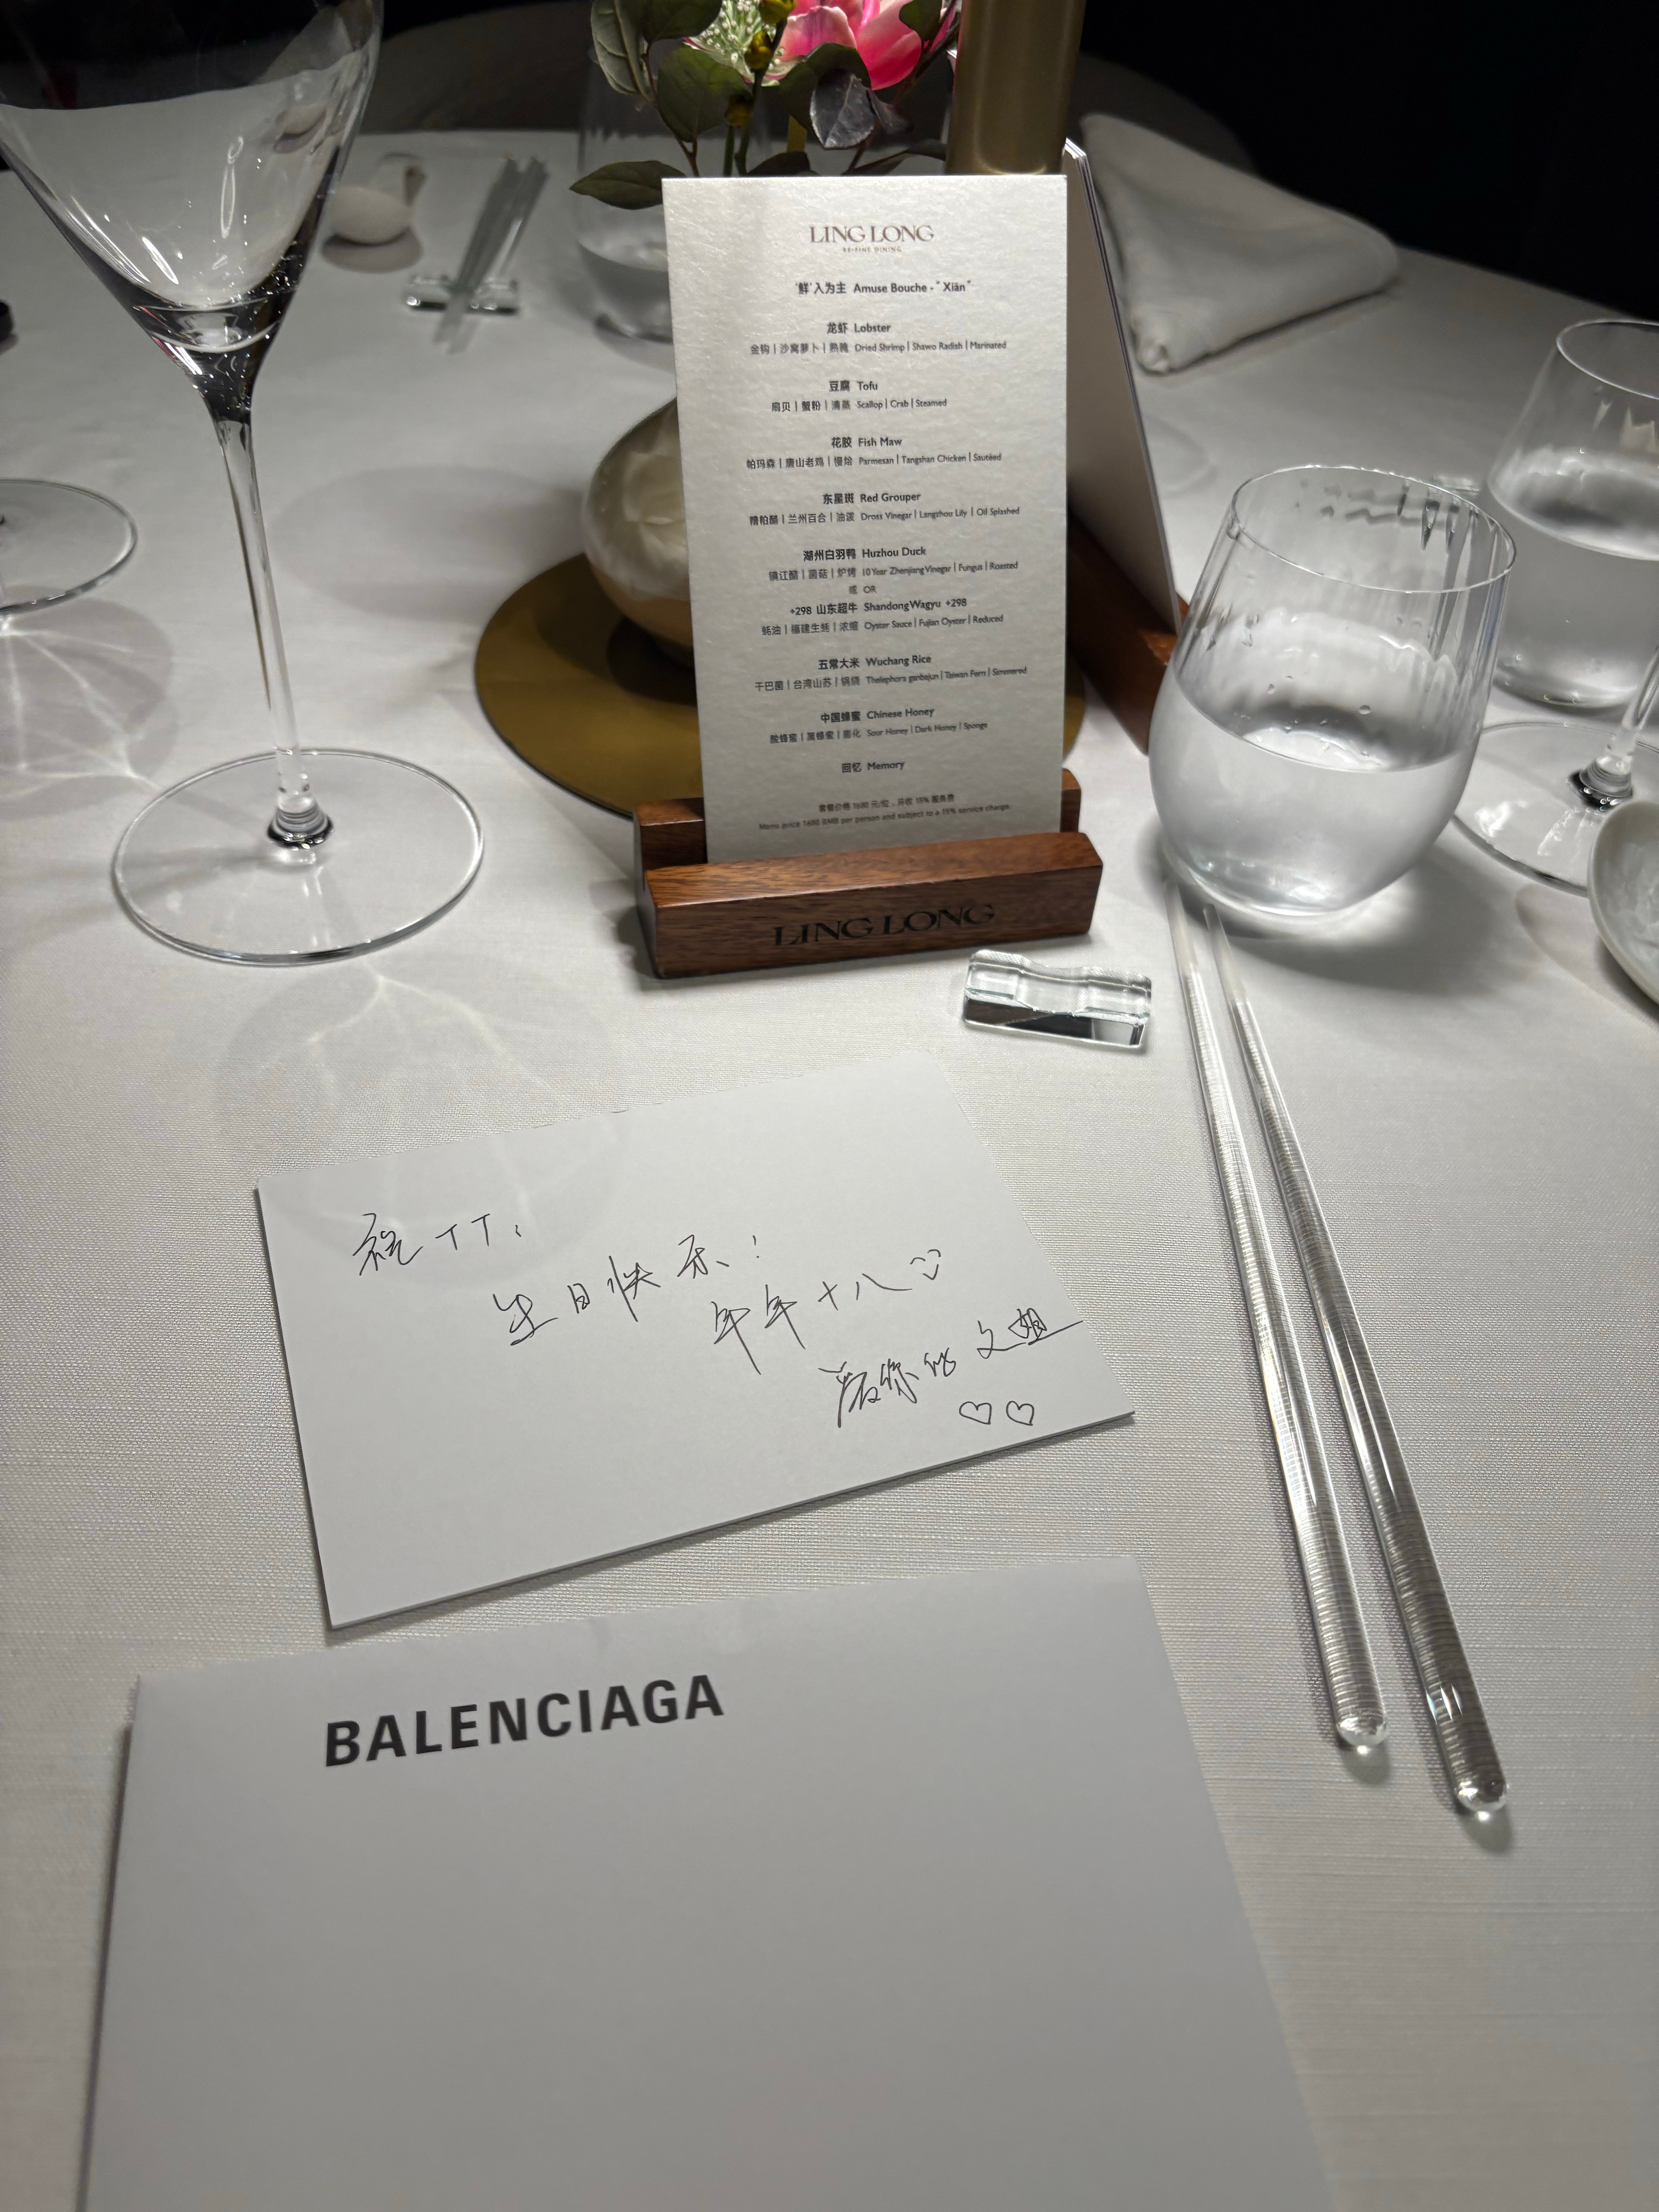 LING LONG
RE-FINE DINING
'鲜'入为主 Amuse Bouche - "Xiān"
龙虾 Lobster
金钩 | 沙窝萝卜 | 熟腌 Dried Shrimp | Shawo Radish | Marinated
豆腐 Tofu
扇贝 | 蟹粉 | 清蒸 Scallop | Crab | Steamed
花胶 Fish Maw
帕玛森 | 唐山老鸡 | 慢烩 Parmesan | Tangshan Chicken | Sautéed
东星斑 Red Grouper
糟粕醋 | 兰州百合 | 油泼 Dross Vinegar | Langzhou Lily | Oil Splashed
湖州白羽鸭 Huzhou Duck
镇江醋 | 菌菇 | 炉烤 10 Year Zhenjiang Vinegar | Fungus | Roasted
或 OR
+298 山东超牛 Shandong Wagyu +298
蚝油 | 福建生蚝 | 浓缩 Oyster Sauce | Fujian Oyster | Reduced
五常大米 Wuchang Rice
干巴菌 | 台湾山苏 | 锅烧 Thelephora ganbajun | Taiwan Fern | Simmered
中国蜂蜜 Chinese Honey
酸蜂蜜 | 黑蜂蜜 | 膨化 Sour Honey | Dark Honey | Sponge
回忆 Memory
套餐价格 1680 元/位，并收 15% 服务费
Menu price 1680 RMB per person and subject to a 15% service charge.
LING LONG
祝 TT：
生日快乐！
年年十八
爱你的 文姐
BALENCIAGA